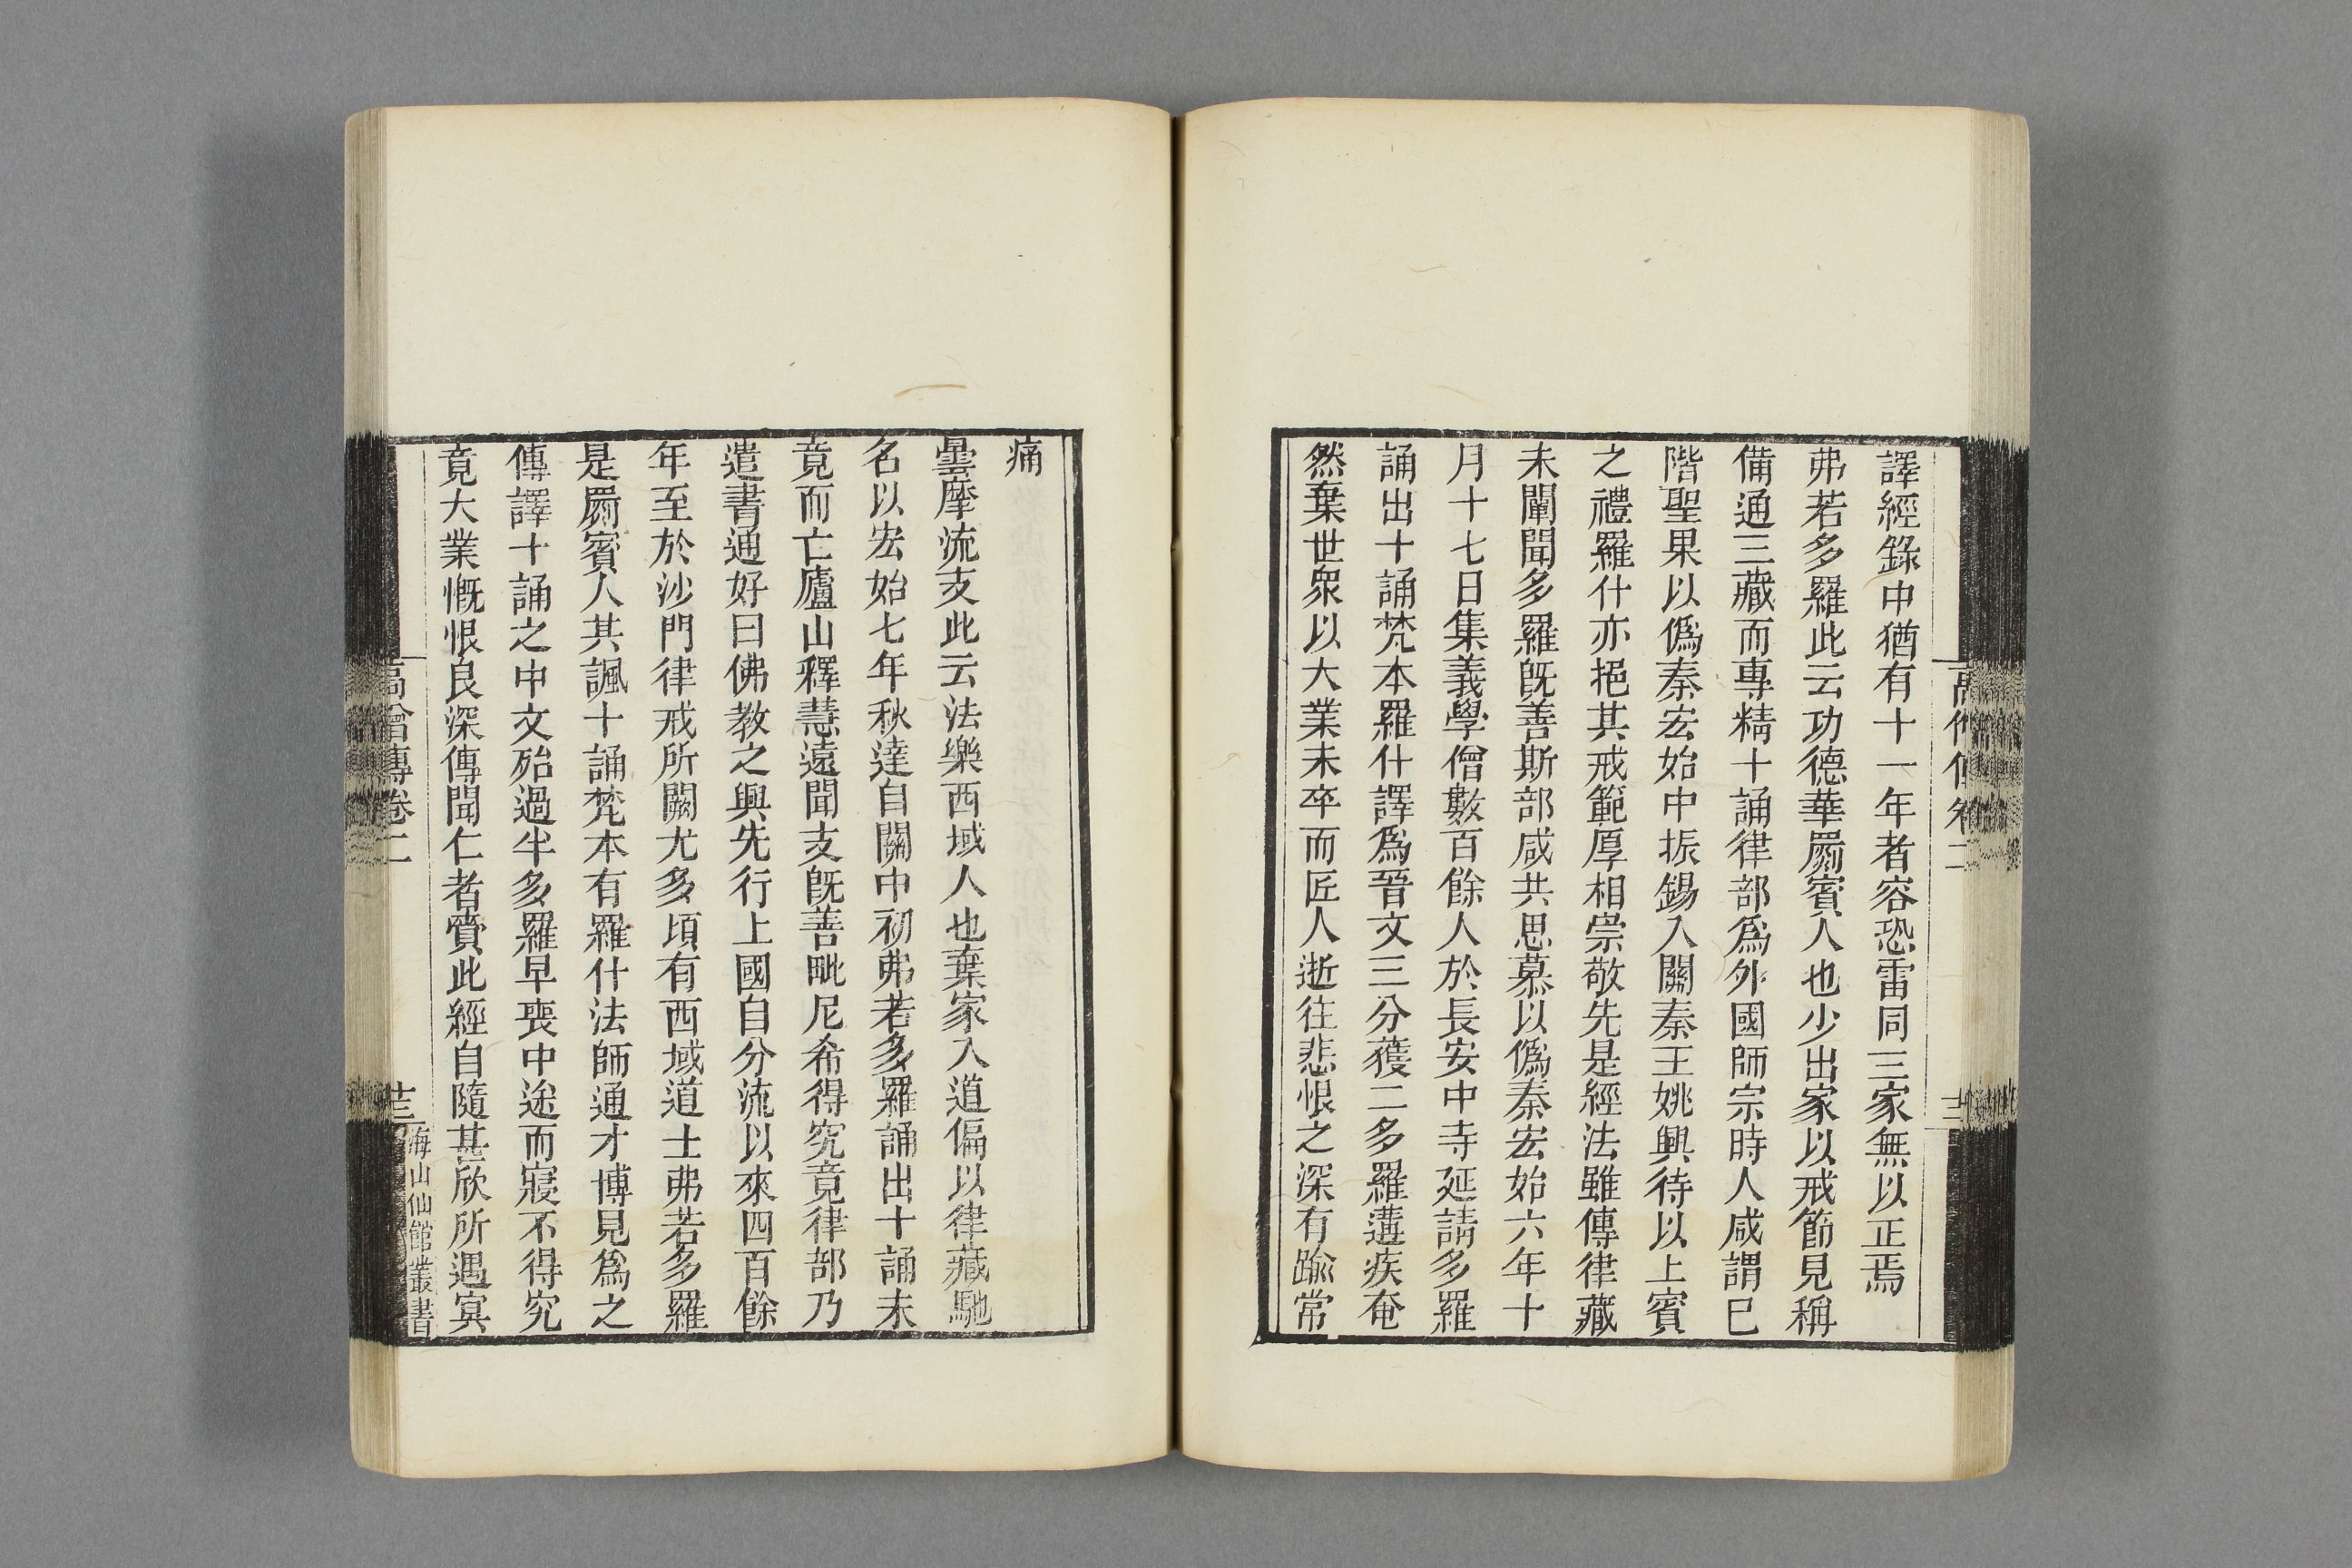 譯經錄中猶有十一年者容恐雷同三家無以正焉
弗若多羅此云功德華罽賓人也少出家以戒節見稱
備通三藏而專精十誦律部爲外國師宗時人咸謂已
階聖果以僞秦宏始中振錫入關秦王姚興待以上賓
之禮羅什亦挹其戒範厚相崇敬先是經法雖傳律藏
未闡聞多羅旣善斯部咸共思慕以僞秦宏始六年十
月十七日集義學僧數百餘人於長安中寺延請多羅
誦出十誦梵本羅什譯爲晉文三分獲二多羅遘疾奄
然棄世衆以大業未卒而匠人逝往悲恨之深有踰常
痛
曇摩流支此云法樂西域人也棄家入道偏以律藏馳
名以宏始七年秋達自關中初弗若多羅誦出十誦未
竟而亡廬山釋慧遠聞支旣善毗尼希得究竟律部乃
遣書通好曰佛教之興先行上國自分流以來四百餘
年至於沙門律戒所闕尤多頃有西域道士弗若多羅
是罽賓人其諷十誦梵本有羅什法師通才博見爲之
傳譯十誦之中文殆過半多羅早喪中途而寢不得究
竟大業慨恨良深傳聞仁者齎此經自隨甚欣所遇冥
高僧傳卷二
廿三
海山仙館叢書